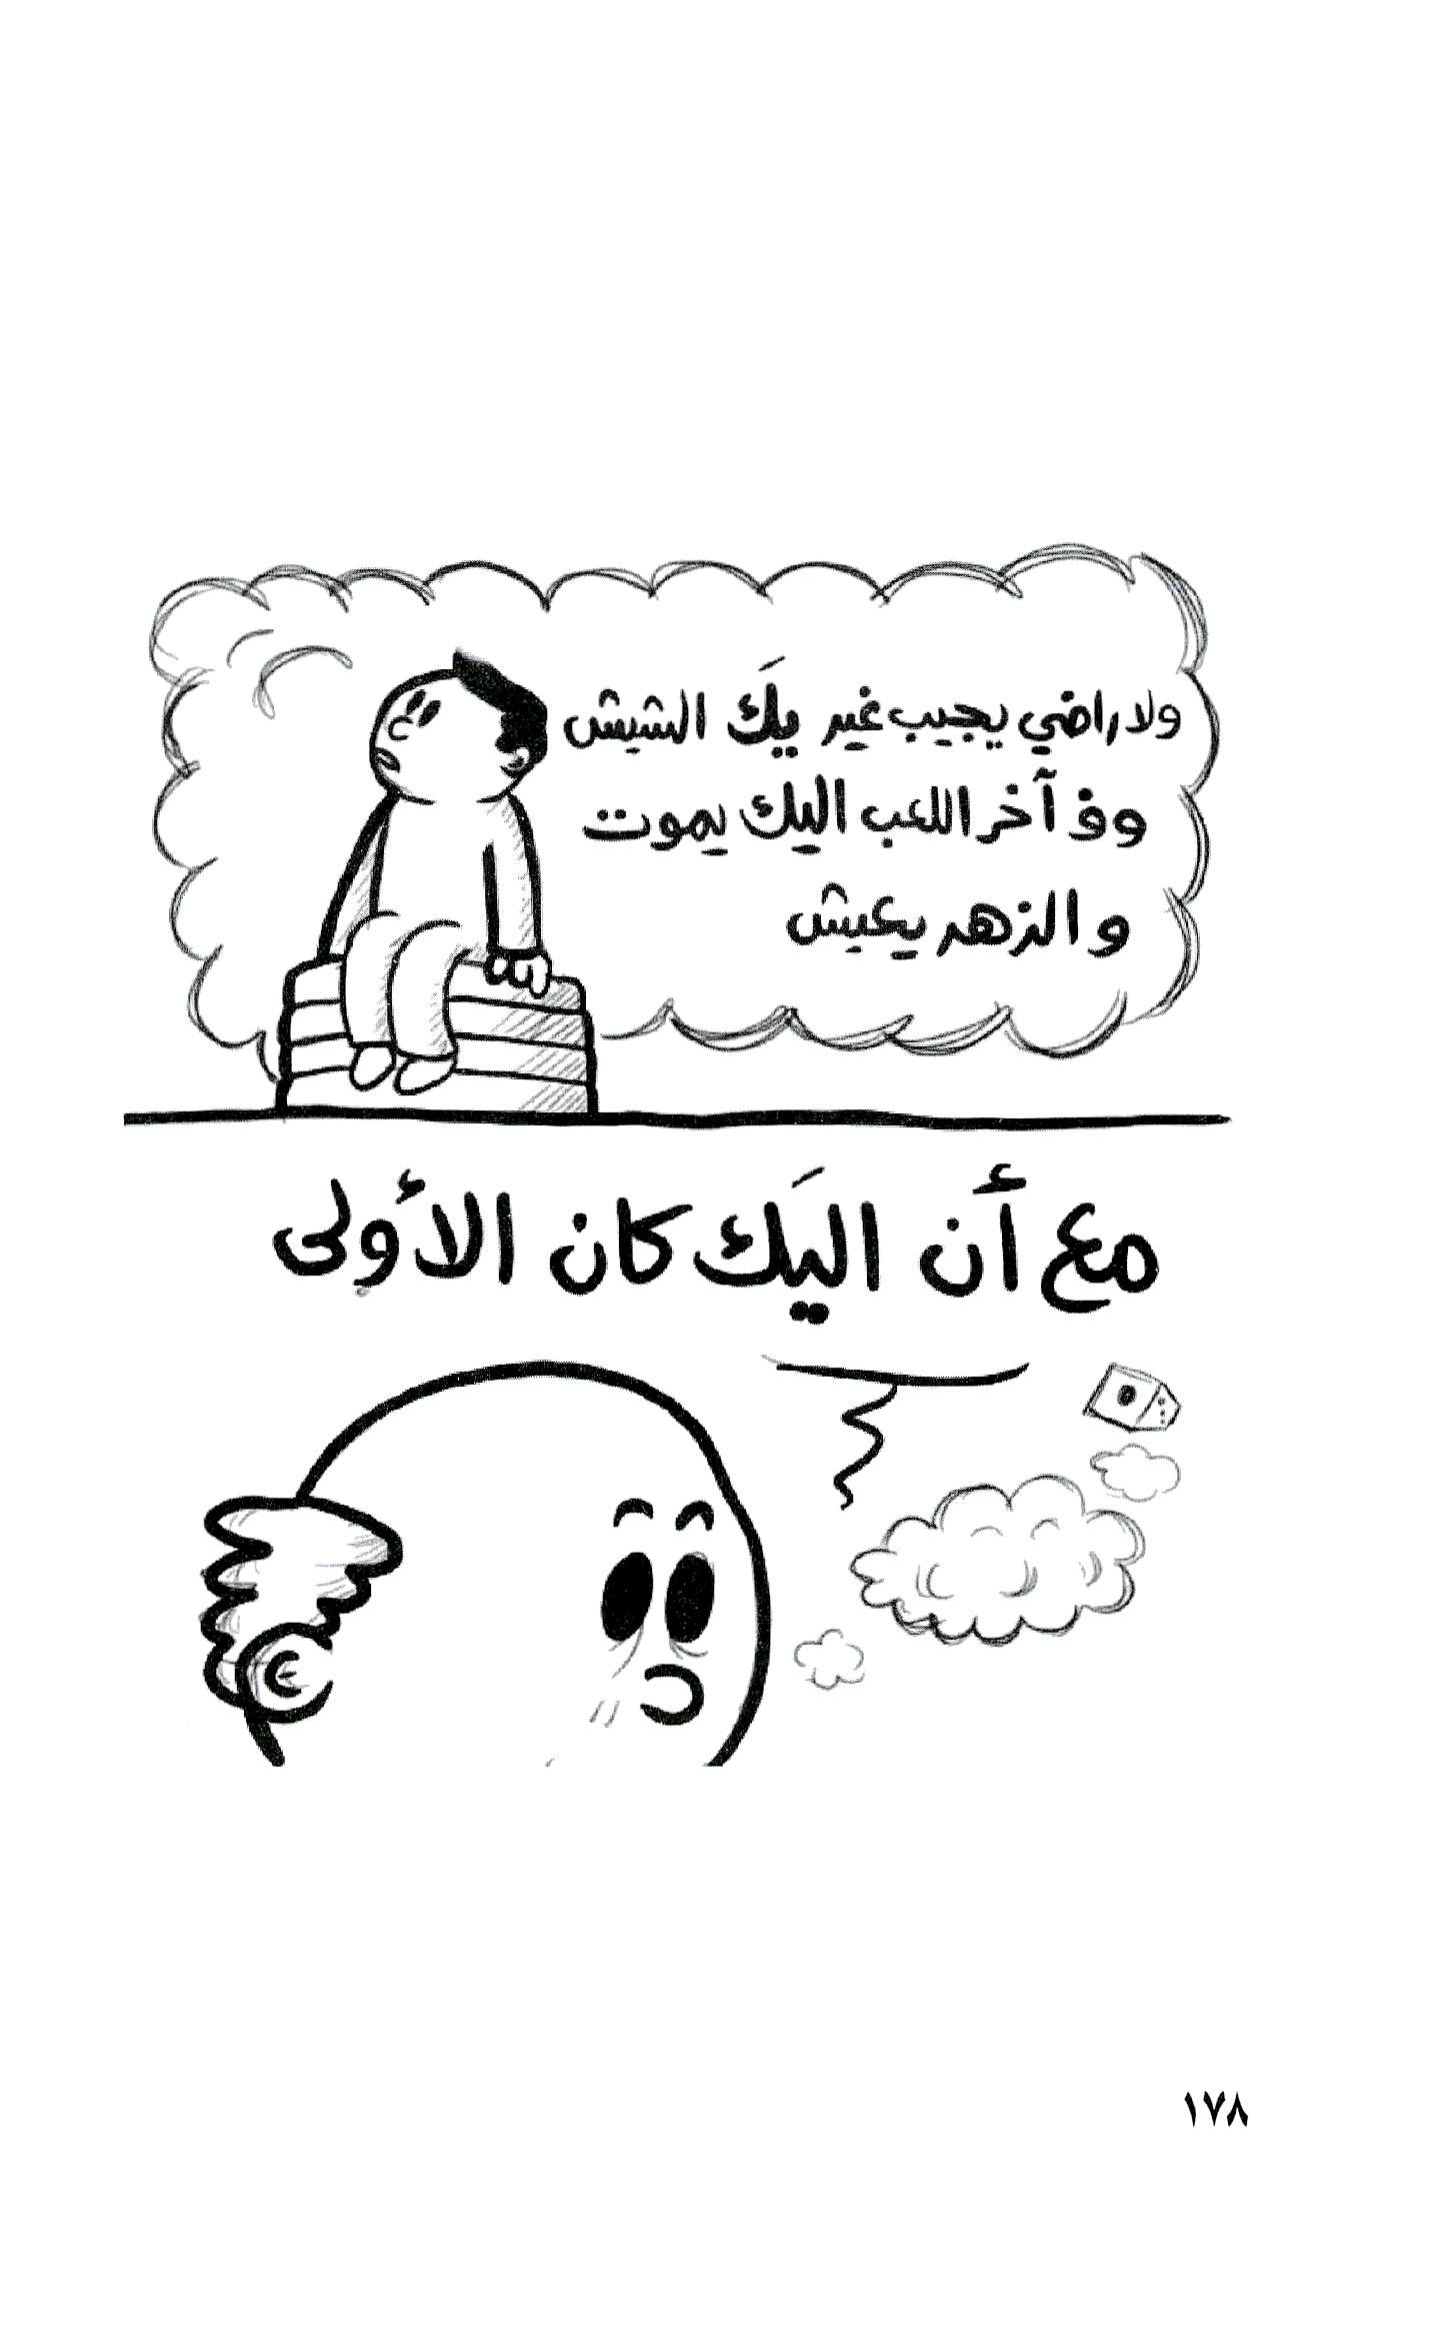 ولا راضي يجيب غير يَك الشيش
وف آخر اللعب اليك يموت
والزهر يعيش
مع أن اليَك كان الأولى
١٧٨